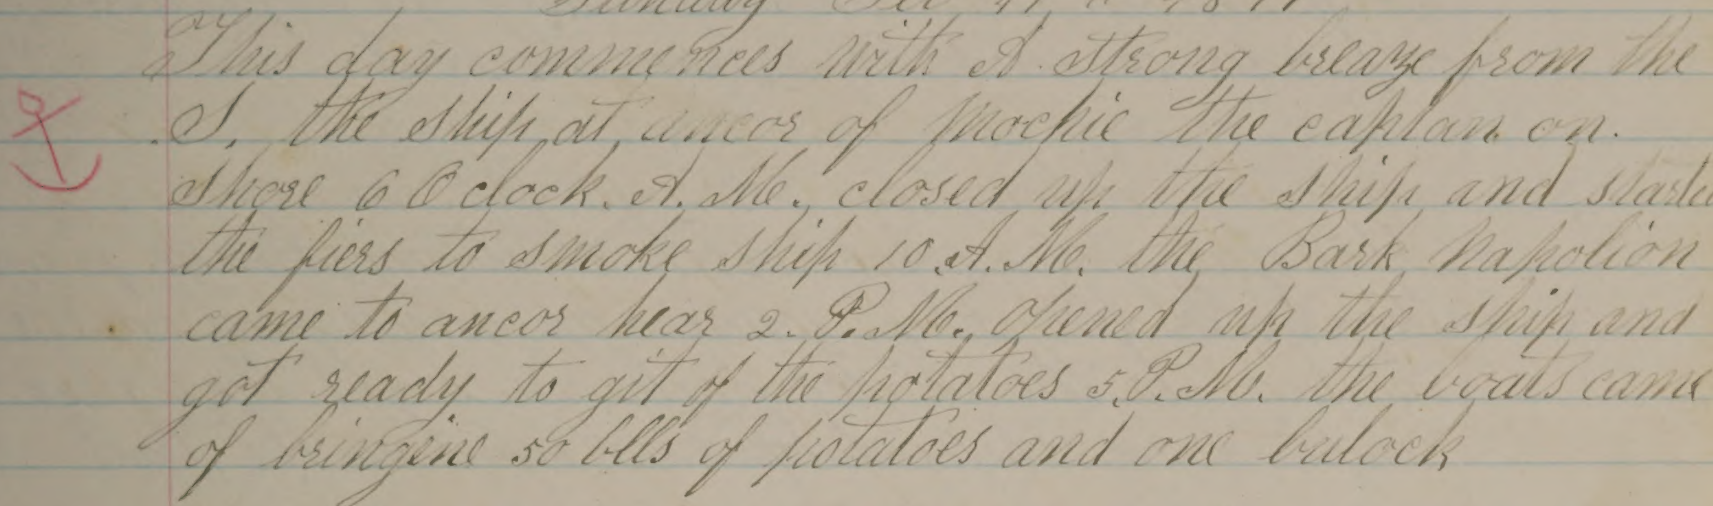 Sunday
This day commences with A strong breaze from the
S. the ship at ancor of Mochie the captan on.
shore 6 O clock. A. M. closed up the ship and started
the fiers to smoke ship 10. A. M. the Bark Napolion
came to ancor hear 2. P. M. opened up the ship and
got ready to git of the potatoes 5. P. M. the boats came
of bringine 50 blls of potatoes and one bulock